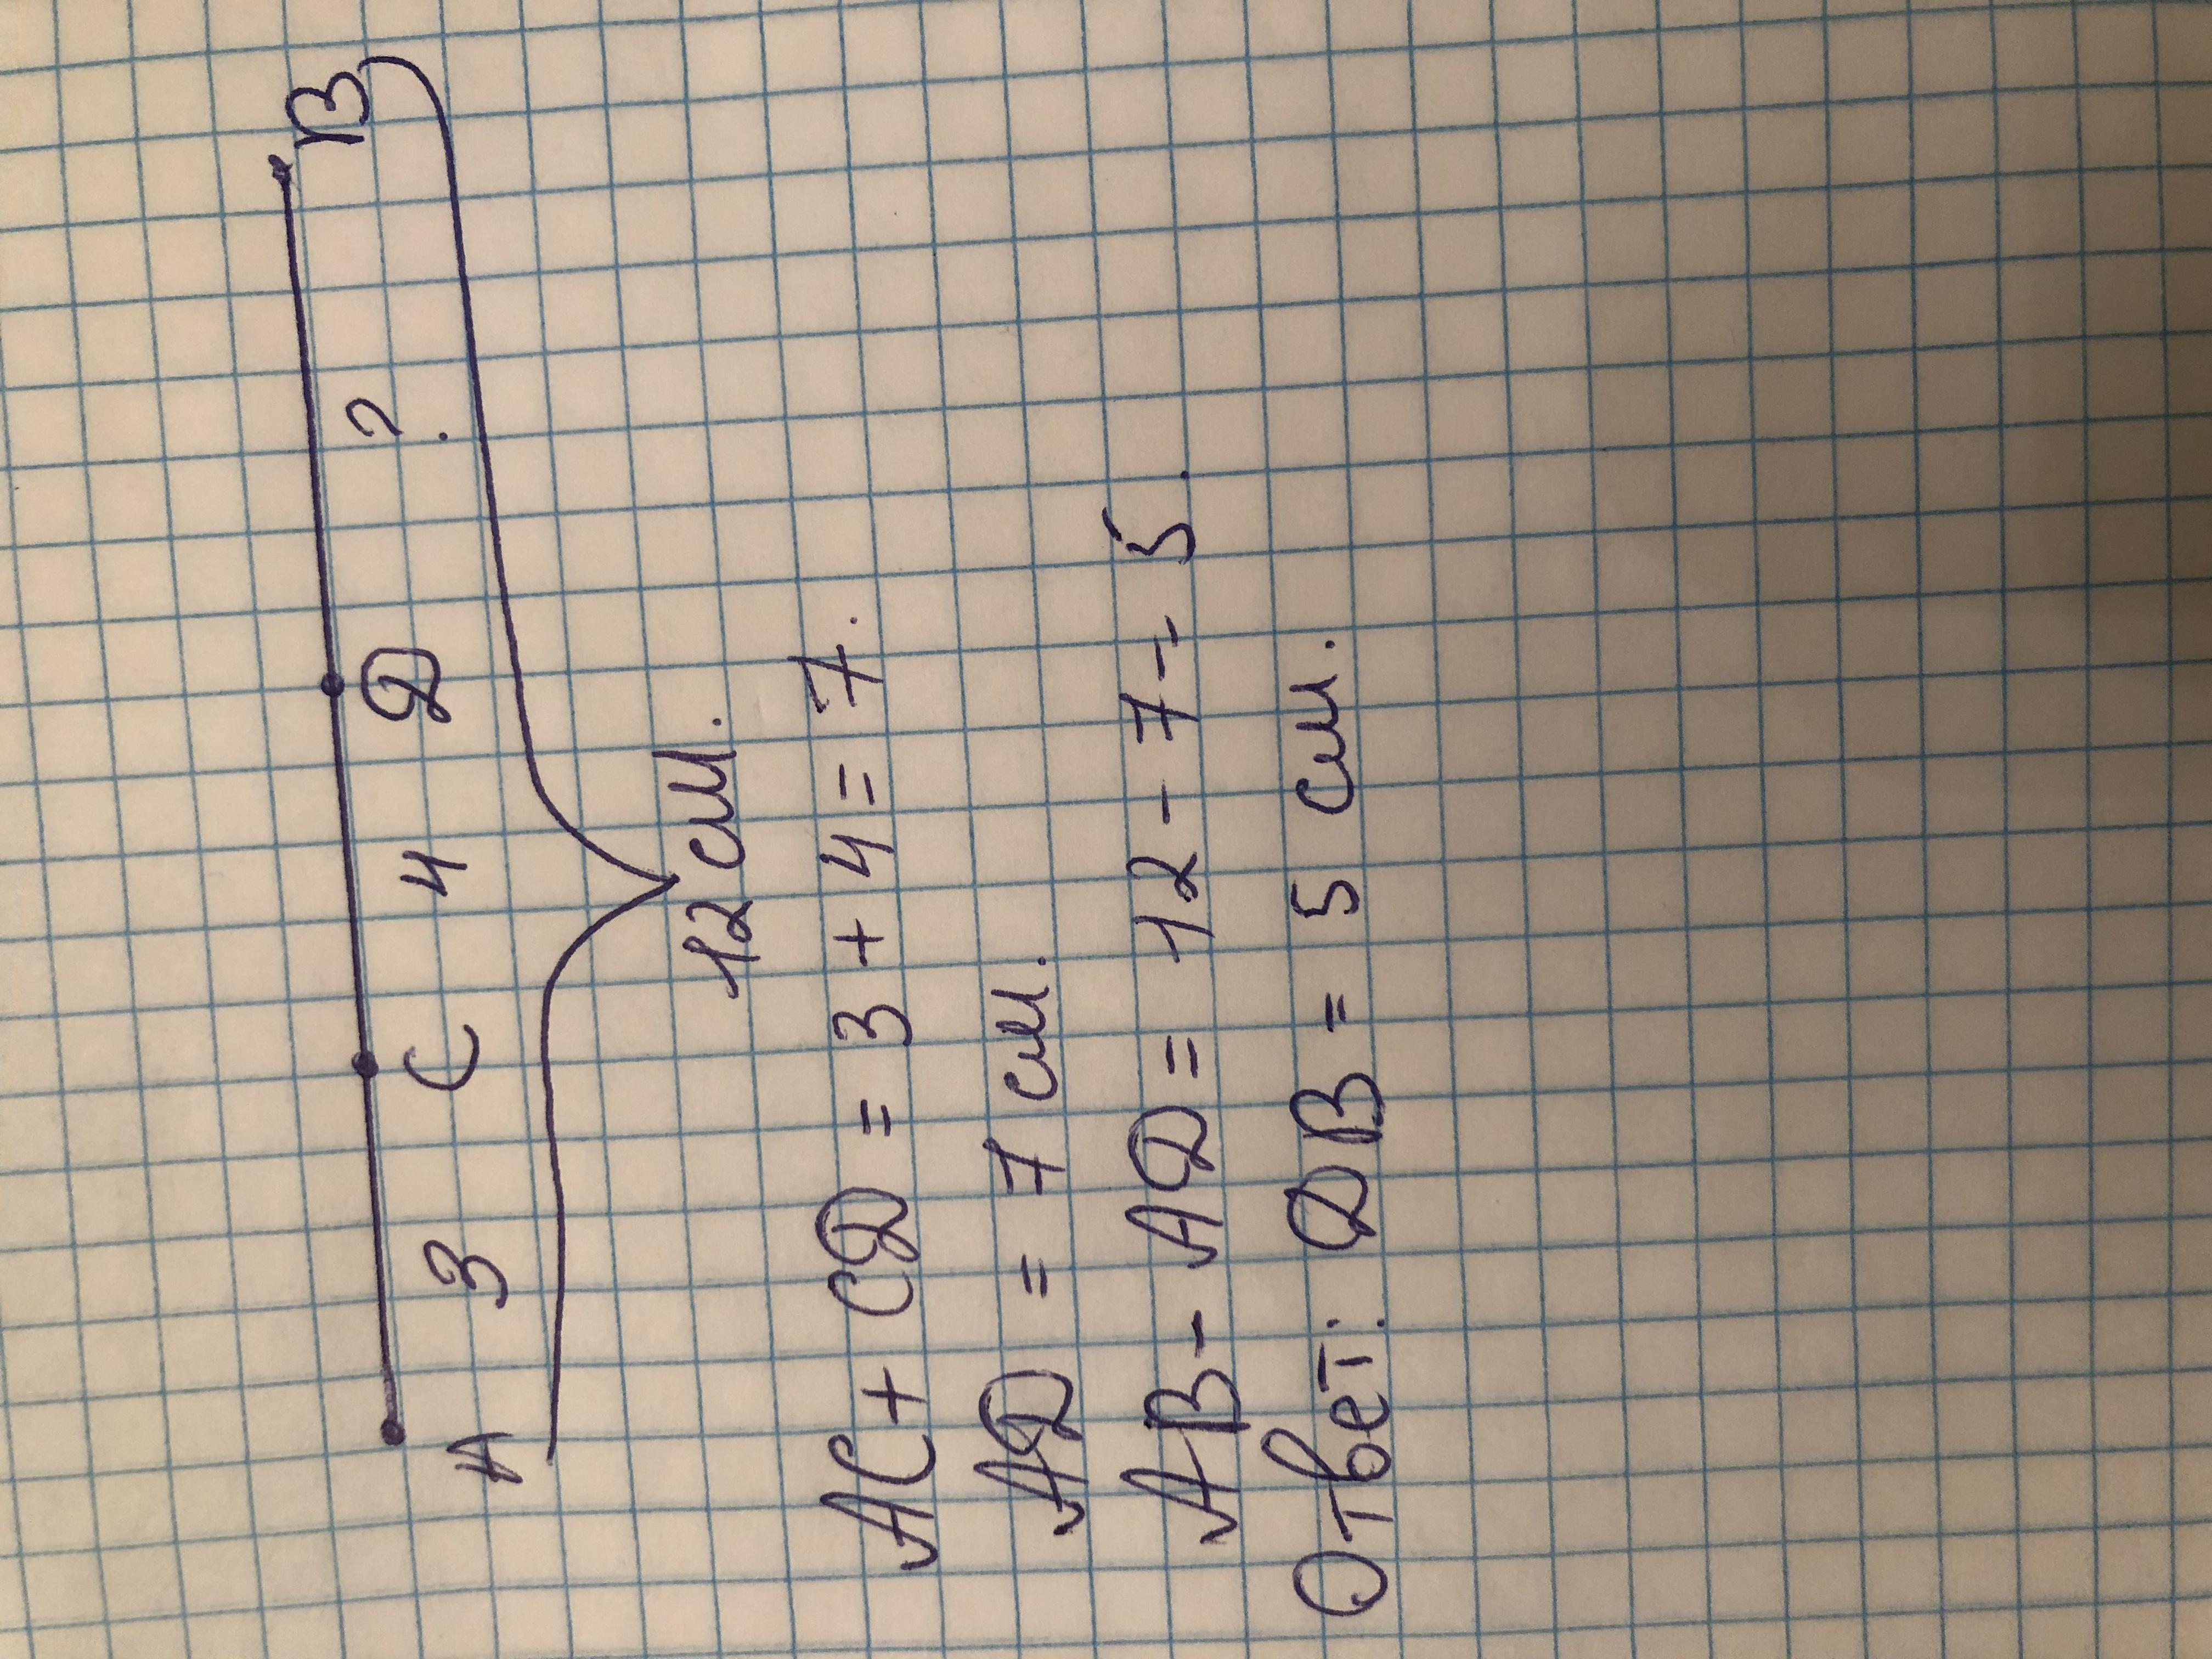 A 3 C 4 D ? B
12 см.
AC + CD = 3 + 4 = 7.
AD = 7 см.
AB - AD = 12 - 7 = 5.
Ответ: DB = 5 см.